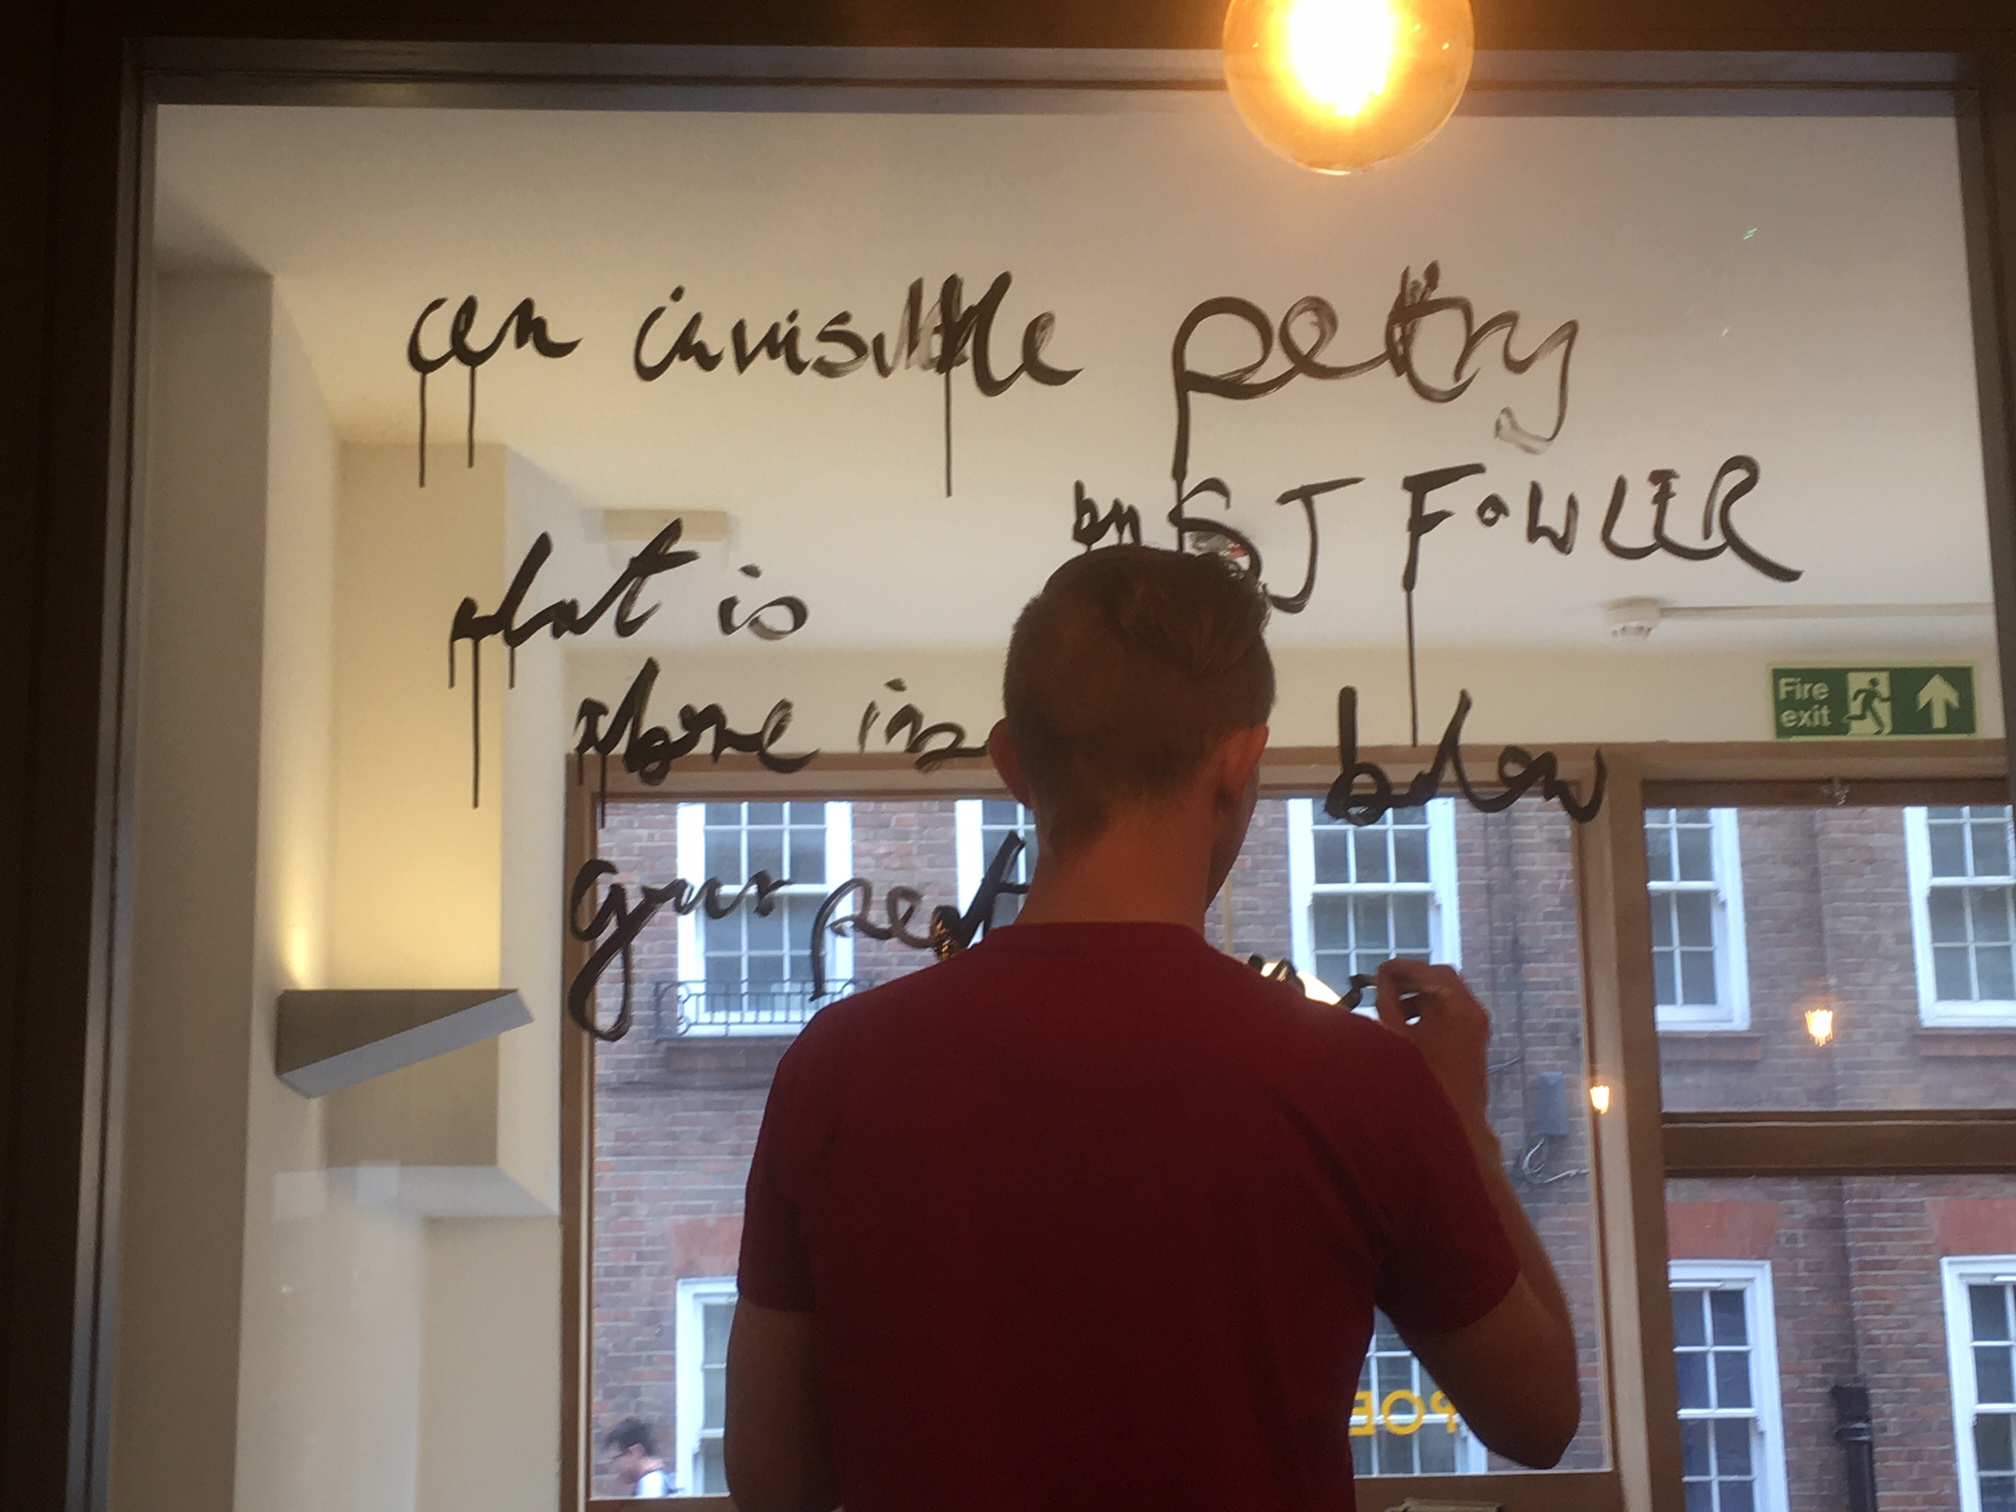 an invisible petry
by SJ FOWLER
what is
above is
below
your poet
Fire
exit
POE